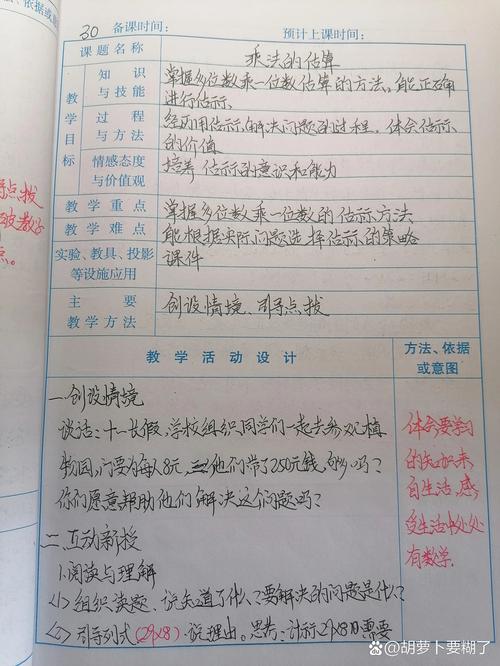 30 备课时间: 预计上课时间:
课题名称 乘法的估算
教学目标
知识与技能 掌握多位数乘一位数估算的方法。能正确
进行估算
过程与方法 经历用估算解决问题的过程,体会估算
的价值
情感态度与价值观 培养估算的意识和能力
教学重点 掌握多位数乘一位数的估算方法
教学难点 能根据实际问题选择估算的策略
实验、教具、投影等设施应用 课件
主要教学方法 创设情境、引导点拨
教学活动设计 方法、依据或意图
一、创设情境
谈话:十一长假,学校组织同学们一起去参观植
物园,门票为每人8元,他们带了250元钱,够吗?
你们愿意帮助他们解决这个问题吗?
二、互动新授
1.阅读与理解
(1)组织读题、说知道了什么?要解决的问题是什么?
(2)引导列式(29×8)说理由。思考:计算29×8用需要
体会要学习
的知识来
自生活,感
受生活中处处
有数学.
点拨
点。
@胡萝卜要糊了